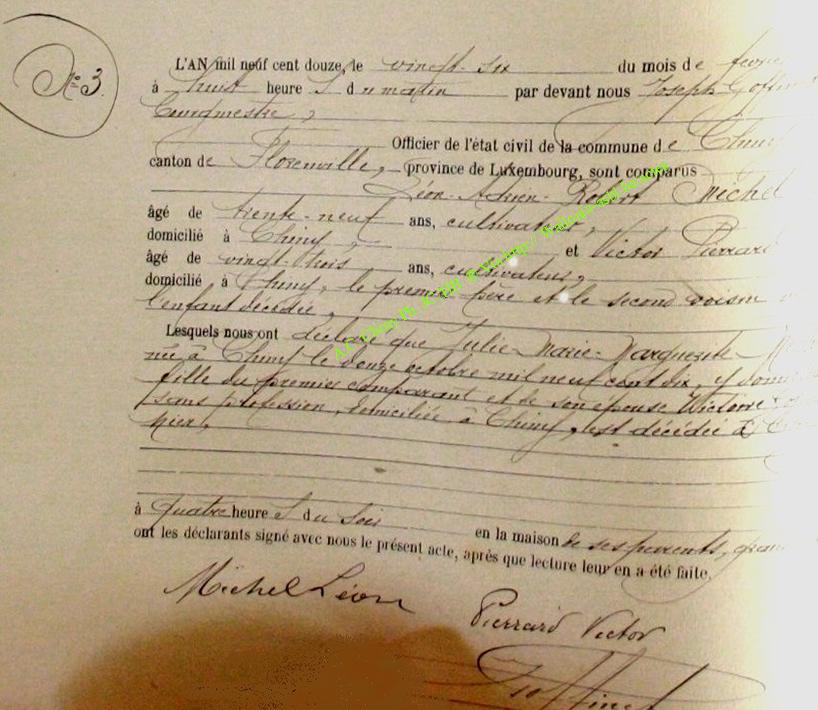 N° 3.
L'AN mil neuf cent douze, le vingt-six du mois de
à huit heure s du matin par devant nous Joseph
Bourgmestre,
Officier de l'état civil de la commune de Chiny
canton de Florenville, province de Luxembourg, sont comparus
Léon-Adrien-Robert Michel
âgé de trente-neuf ans, cultivateur,
domicilié à Chiny, et Victor Pierrard
âgé de vingt-trois ans, cultivateur,
domicilié à Chiny, le premier père et le second voisin
l'enfant décédée,
Lesquels nous ont déclaré que Julie-Marie-Marguerite
née à Chiny le douze octobre mil neuf cent dix, y
fille du premier comparant et de son épouse Victoire
sans profession, domiciliée à Chiny, est décédée à
hier,
à quatre heure s du soir en la maison de ses parents,
ont les déclarants signé avec nous le présent acte, après que lecture leur en a été faite,
Michel Léon
Pierrard Victor